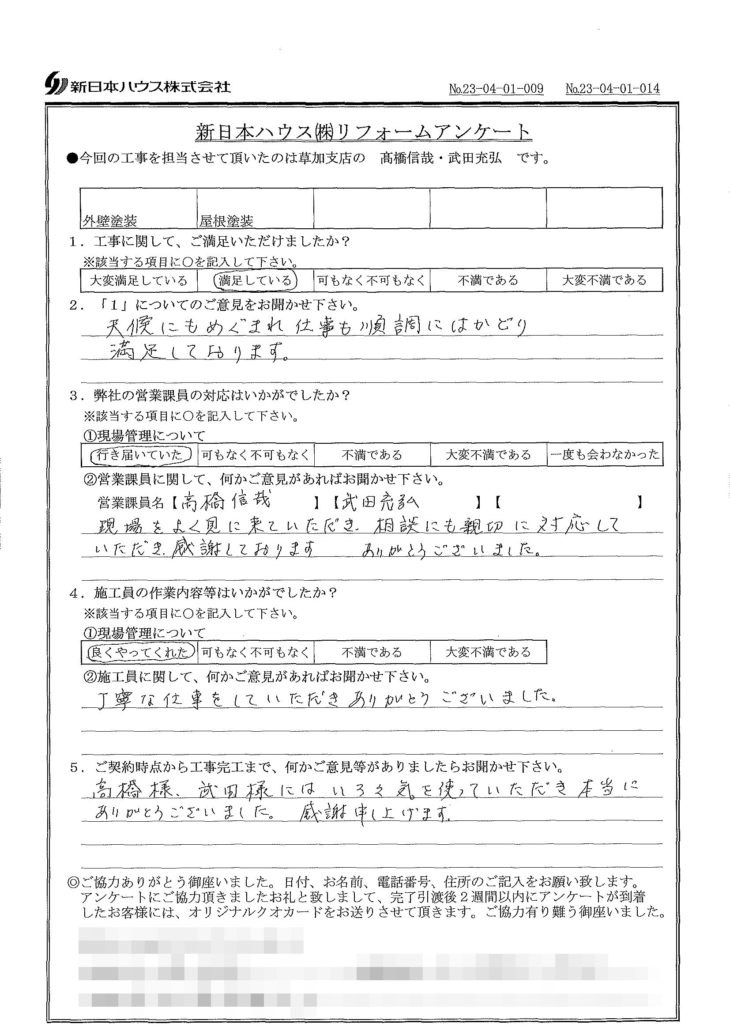 新日本ハウス株式会社 №23-04-01-009 №23-04-01-014
新日本ハウス㈱リフォームアンケート
●今回の工事を担当させて頂いたのは草加支店の 髙橋信哉・武田充弘 です。
外壁塗装 屋根塗装
1．工事に関して、ご満足いただけましたか？
※該当する項目に○を記入して下さい。
大変満足している 満足している 可もなく不可もなく 不満である 大変不満である
2．「1」についてのご意見をお聞かせ下さい。
天候にもめぐまれ仕事も順調にはかどり
満足しております。
3．弊社の営業課員の対応はいかがでしたか？
※該当する項目に○を記入して下さい。
①現場管理について
行き届いていた 可もなく不可もなく 不満である 大変不満である 一度も会わなかった
②営業課員に関して、何かご意見があればお聞かせ下さい。
営業課員名【高橋信哉 】【武田充弘 】【 】
現場をよく見に来ていただき、相談にも親切に対応して
いただき、感謝しております ありがとうございました。
4．施工員の作業内容等はいかがでしたか？
※該当する項目に○を記入して下さい。
①現場管理について
良くやってくれた 可もなく不可もなく 不満である 大変不満である
②施工員に関して、何かご意見があればお聞かせ下さい。
丁寧な仕事をしていただきありがとうございました。
5．ご契約時点から工事完工まで、何かご意見等がありましたらお聞かせ下さい。
高橋様、武田様にはいろ々気を使っていただき本当に
ありがとうございました。 感謝申し上げます。
◎ご協力ありがとう御座いました。日付、お名前、電話番号、住所のご記入をお願い致します。
アンケートにご協力頂きましたお礼と致しまして、完了引渡後２週間以内にアンケートが到着
したお客様には、オリジナルクオカードをお送りさせて頂きます。ご協力有り難う御座いました。